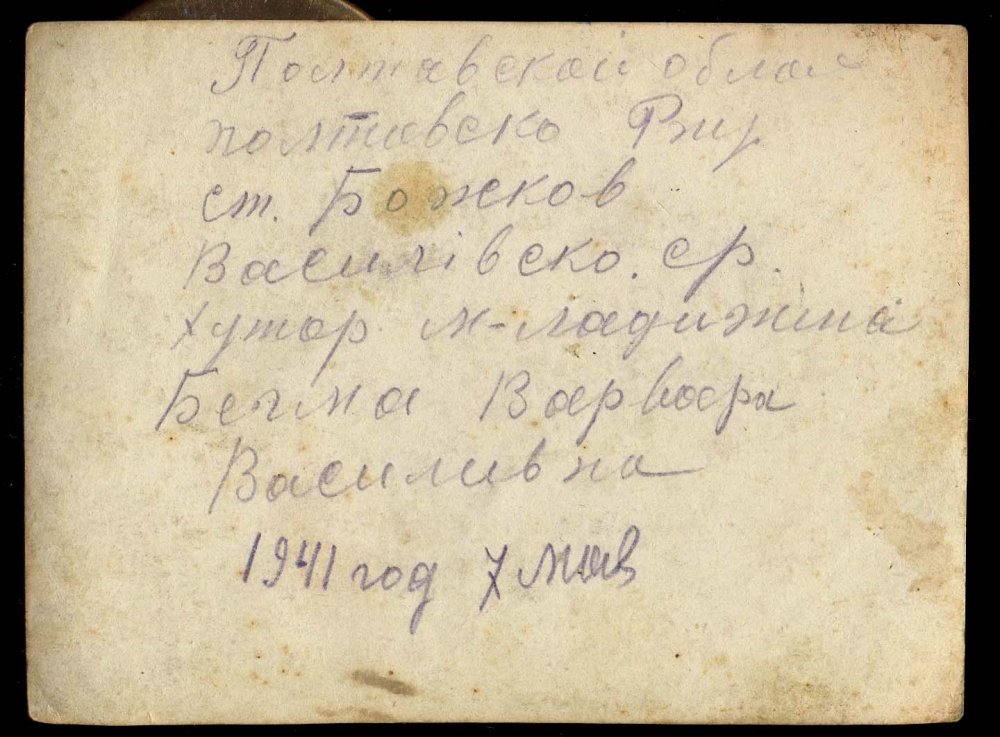 Полтавской облас
полтавско Рну
ст. Божков
Василівско. ср.
хутор м-ладижина
Бегма Варвара
Василивна
1941 год 7 мая